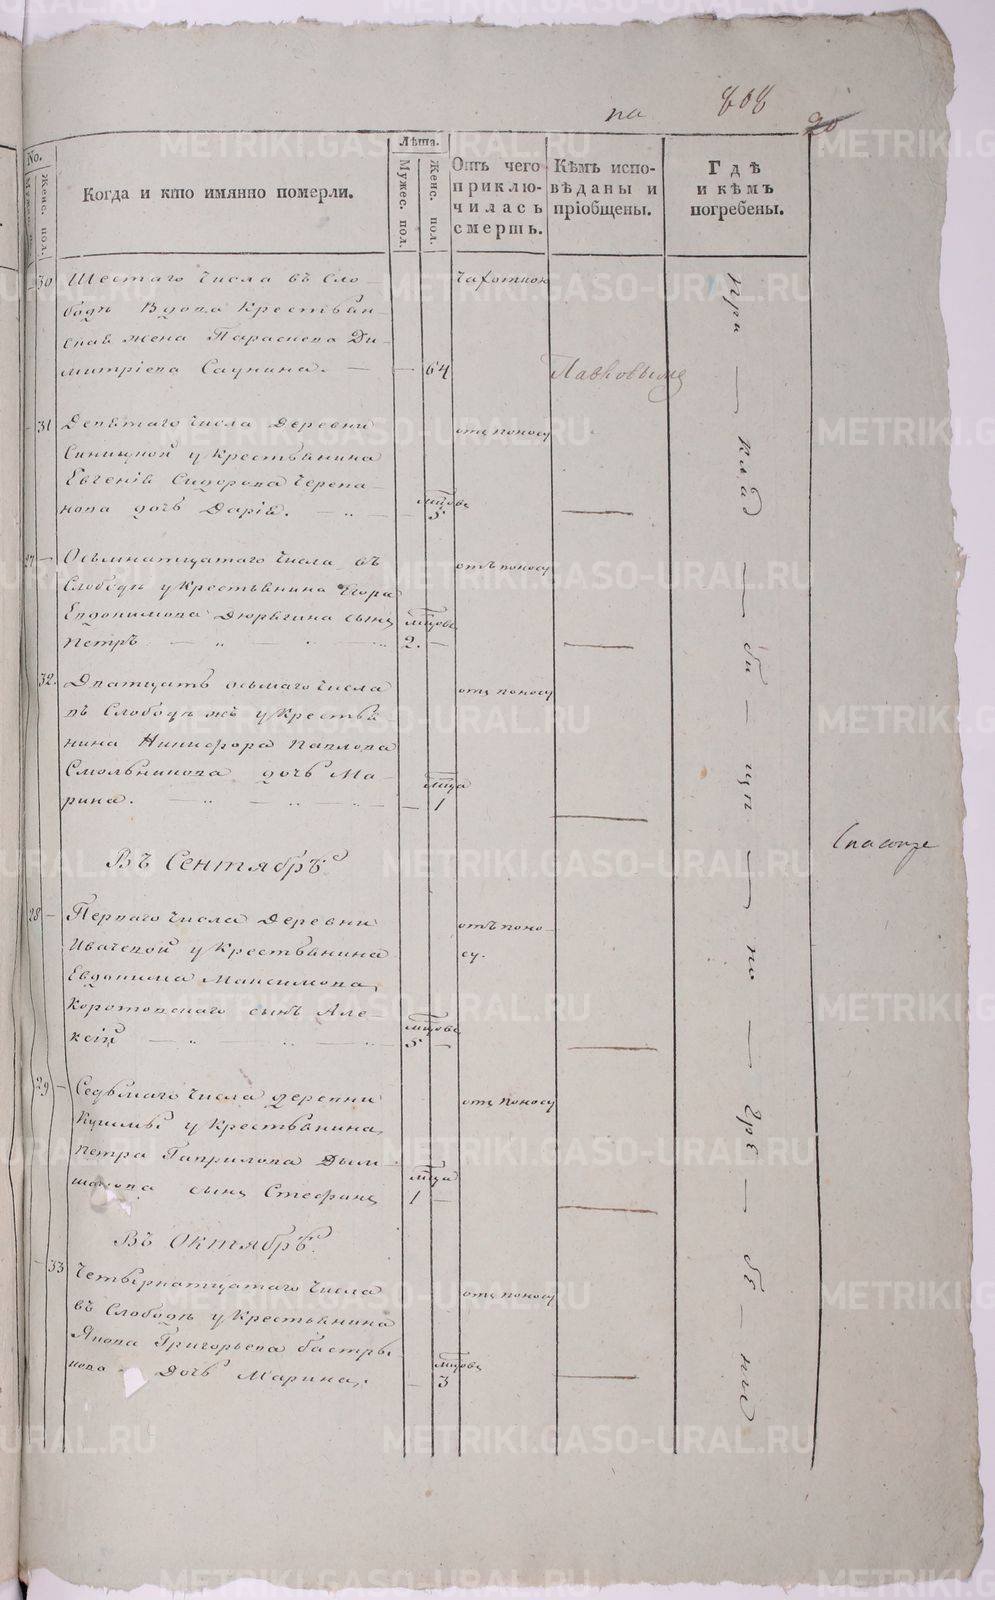 на 808
20
No.
Мужес.
Женс. пол.
Когда и кто имянно померли.
Лѣта.
Мужес. пол.
Женс. пол.
Отъ чего приключилась смерть.
Кѣмъ исповѣданы и пріобщены.
Гдѣ и кѣмъ погребены.
30 Шестаго числа въ Сло-
бодѣ Вдова Крестьян-
ская жена Параскева Ди-
митріева Саунина. — — 64
Чахоткою
31 Девятаго числа Деревни
Синицкой у Крестьянина
Евгенія Сидорова Черепа-
нова дочь Дарія. — мцовъ 5
отъ поносу
27 Осьмнатцатаго числа въ
Слободѣ у Крестьянина Егора
Евдокимова Дюрягина сынъ
Петръ — мцовъ 2. —
отъ поносу
32. Дватцать осьмаго числа
въ Слободѣ жъ у Крестья-
нина Никифора Павлова
Смольникова дочь Ма-
рина. — мца 1
отъ поносу
Въ Сентябрѣ.
28 Перваго числа Деревни
Ивачевой у Крестьянина
Евдокима Максимова
Коротовскаго сынъ Але-
ксій — мцовъ 5 —
отъ поно-
су.
29 Седьмаго числа деревни
у Крестьянина
Петра Гаврилова Дым-
шакова сынъ Стефанъ мца 1 —
отъ поносу
Въ Октябрѣ.
33 Четвернатцатаго числа
въ Слободѣ у Крестьянина
Якова Григорьева бастры-
кова Дочь Марина. мцовъ 3
отъ поносу
При — клад — би — щи — по — гре — бе — ны
METRIKI.GASO-URAL.RU